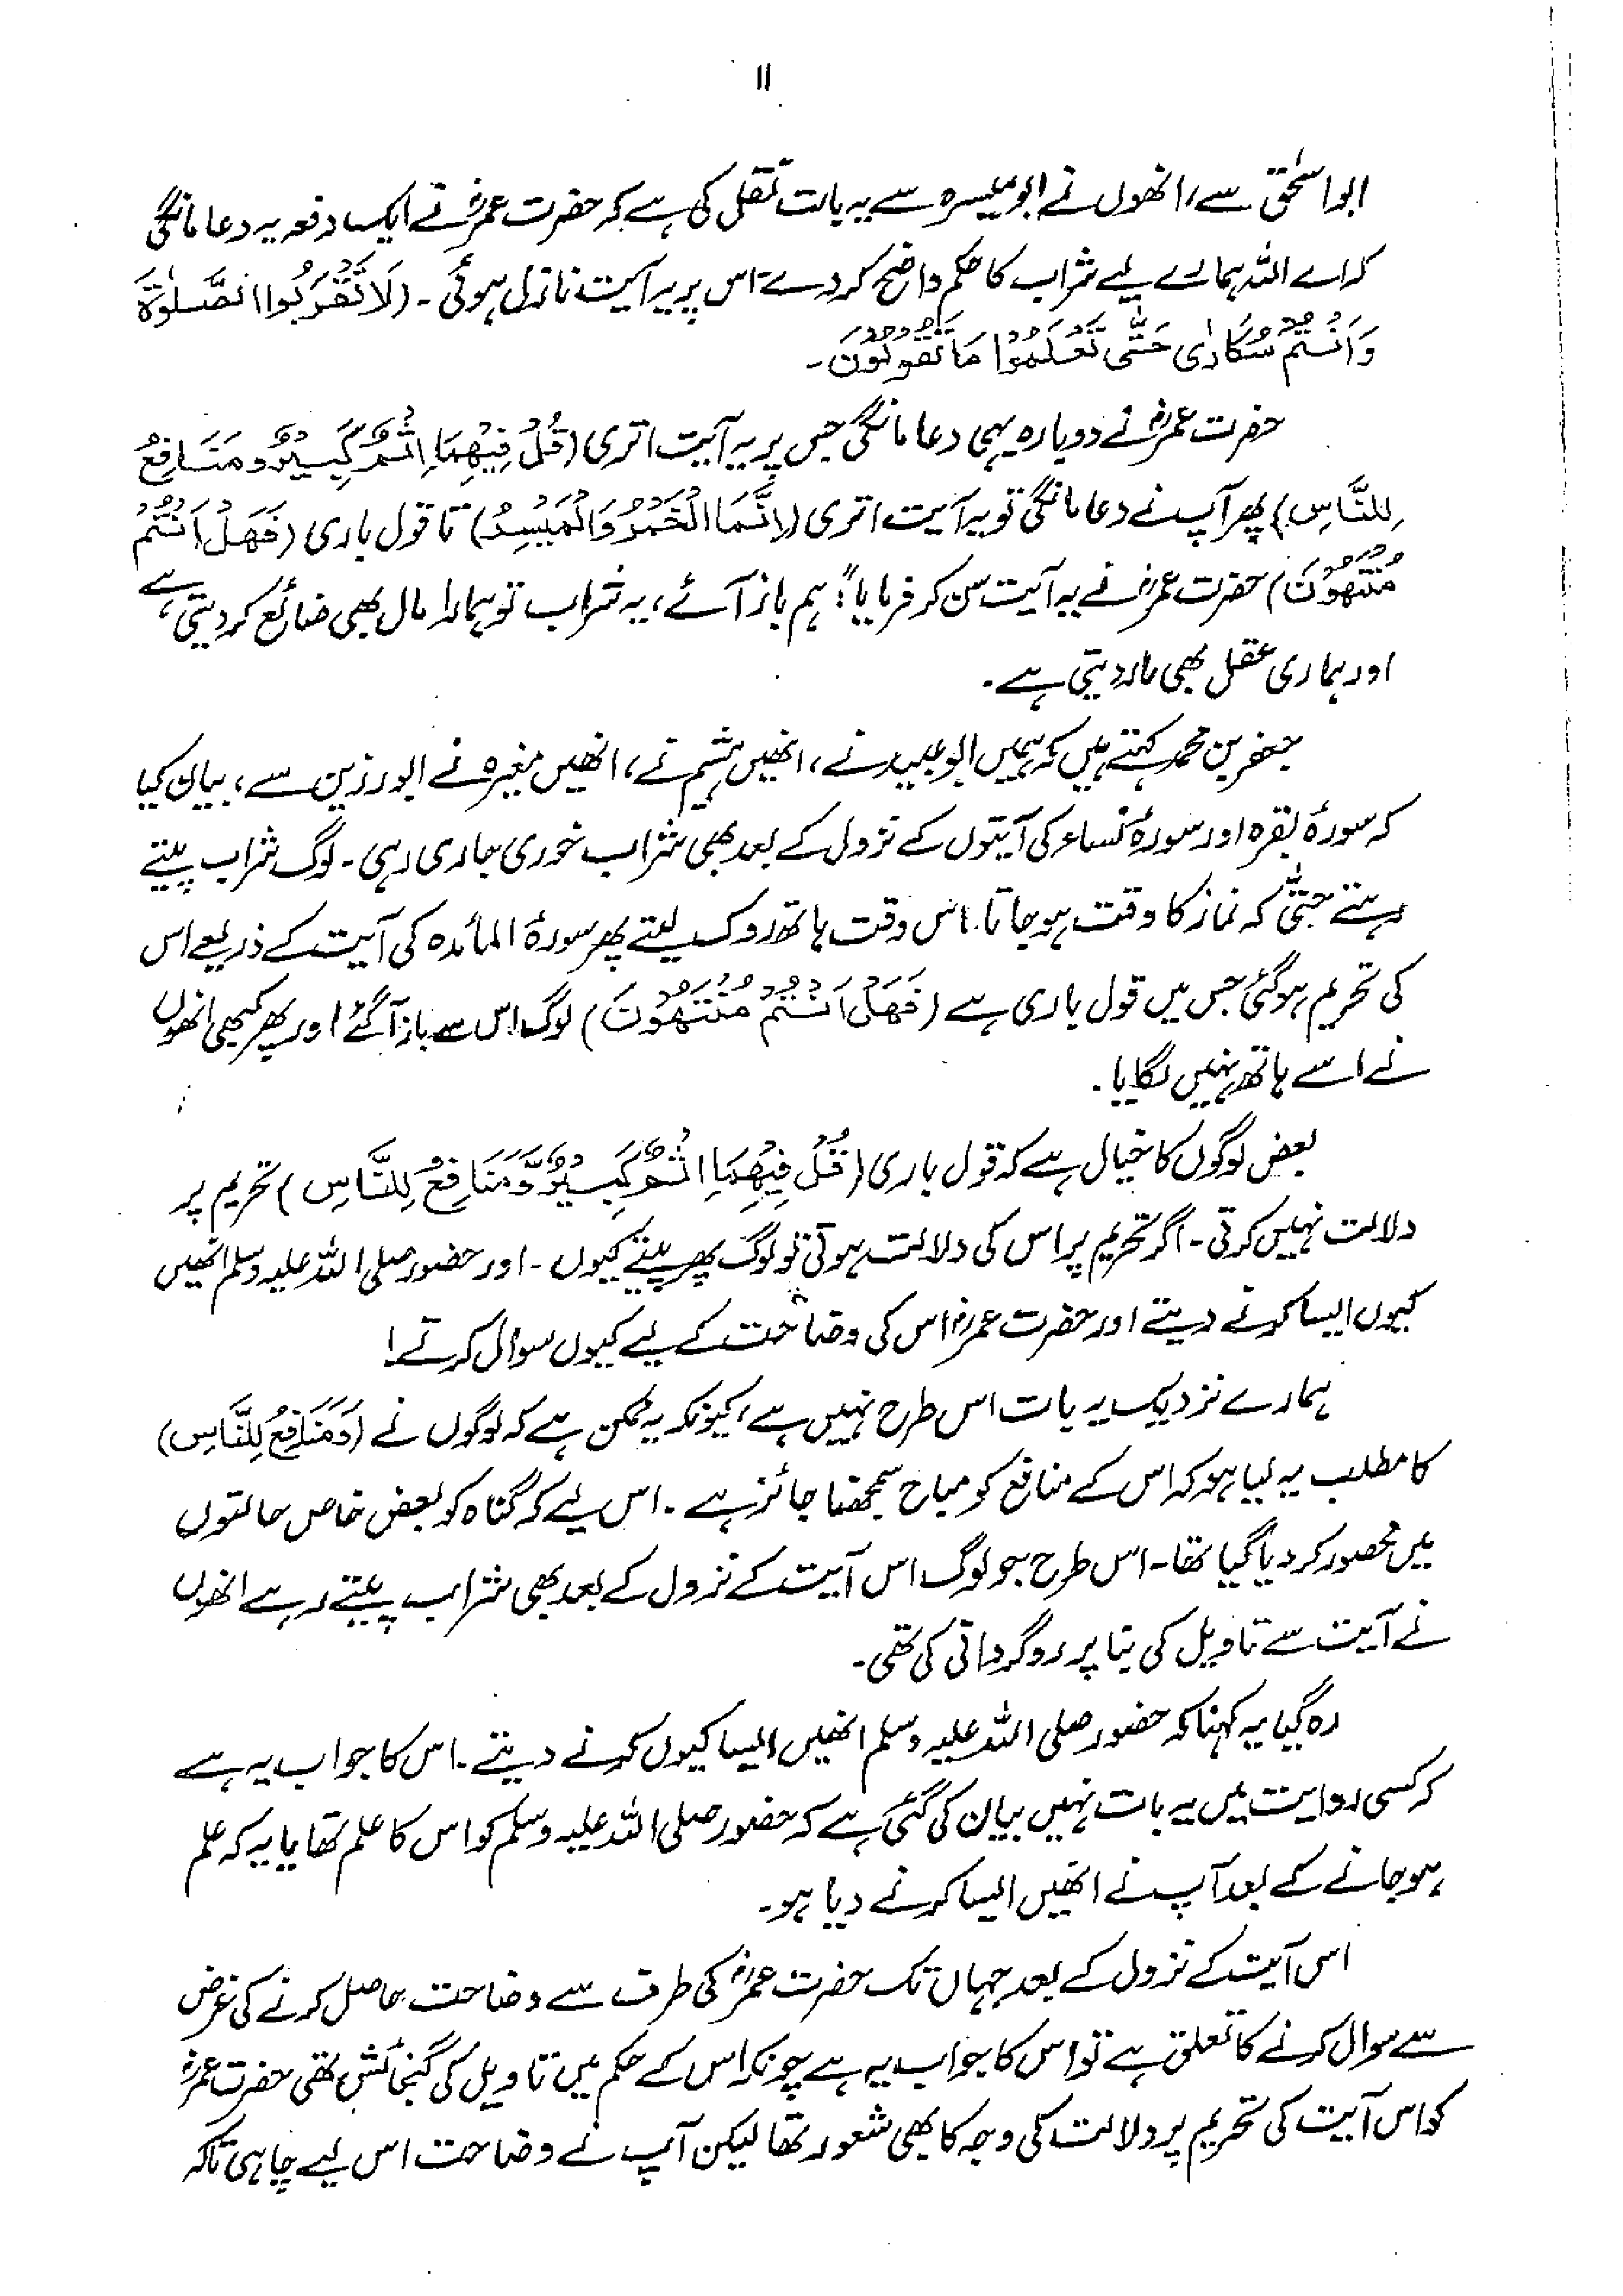 ۱۱
ابواسحٰق سے، انھوں نے ابومیسرہ سے یہ بات نقل کی ہے کہ حضرت عمرؓ نے ایک دفعہ یہ دعا مانگی
کہ اے اللہ ہمارے لیے شراب کا حکم واضح کر دے۔ اس پر یہ آیت نازل ہوئی۔ (لَا تَقْرَبُوا الصَّلٰوةَ
وَاَنْتُمْ سُكَارٰى حَتّٰى تَعْلَمُوْا مَا تَقُوْلُوْنَ۔
حضرت عمرؓ نے دوبارہ یہی دعا مانگی جس پر یہ آیت اتری (قُلْ فِيْهِمَا اِثْمٌ كَبِيْرٌ وَمَنَافِعُ
لِلنَّاسِ) پھر آپ نے دعا مانگی تو یہ آیت اتری (اِنَّمَا الْخَمْرُ وَالْمَيْسِرُ) تا قول باری (فَهَلْ اَنْتُمْ
مُنْتَهُوْنَ) حضرت عمرؓ نے یہ آیت سن کر فرمایا: "ہم باز آئے، یہ شراب تو ہمارا مال بھی ضائع کر دیتی ہے
اور ہماری عقل بھی مار دیتی ہے۔
جعفر بن محمد کہتے ہیں کہ ہمیں ابو عبید نے، انھیں ہشیم نے، انھیں مغیرہ نے ابو رزین سے، بیان کیا
کہ سورۂ بقرہ اور سورۂ نساء کی آیتوں کے نزول کے بعد بھی شراب خوری جاری رہی۔ لوگ شراب پیتے
رہتے حتّٰی کہ نماز کا وقت ہو جاتا۔ اس وقت ہاتھ روک لیتے پھر سورۂ المائدہ کی آیت کے ذریعے اس
کی تحریم ہو گئی جس میں قول باری ہے (فَهَلْ اَنْتُمْ مُنْتَهُوْنَ) لوگ اس سے باز آگئے اور پھر کبھی انھوں
نے اسے ہاتھ نہیں لگایا۔
بعض لوگوں کا خیال ہے کہ قول باری (قُلْ فِيْهِمَا اِثْمٌ كَبِيْرٌ وَّمَنَافِعُ لِلنَّاسِ) تحریم پر
دلالت نہیں کرتی۔ اگر تحریم پر اس کی دلالت ہوتی تو لوگ پھر پیتے کیوں۔ اور حضور صلی اللہ علیہ وسلم انھیں
کیوں ایسا کرنے دیتے اور حضرت عمرؓ اس کی وضاحت کے لیے کیوں سوال کرتے!
ہمارے نزدیک یہ بات اس طرح نہیں ہے، کیونکہ یہ ممکن ہے کہ لوگوں نے (وَمَنَافِعُ لِلنَّاسِ)
کا مطلب یہ لیا ہو کہ اس کے منافع کو مباح سمجھنا جائز ہے۔ اس لیے کہ گناہ کو بعض خاص حالتوں
میں محصور کر دیا گیا تھا۔ اس طرح جو لوگ اس آیت کے نزول کے بعد بھی شراب پیتے رہے انھوں
نے آیت سے تاویل کی بنا پر روگردانی کی تھی۔
رہ گیا یہ کہنا کہ حضور صلی اللہ علیہ وسلم انھیں ایسا کیوں کرنے دیتے۔ اس کا جواب یہ ہے
کہ کسی روایت میں یہ بات نہیں بیان کی گئی ہے کہ حضور صلی اللہ علیہ وسلم کو اس کا علم تھا یا یہ کہ علم
ہو جانے کے بعد آپ نے انھیں ایسا کرنے دیا ہو۔
اس آیت کے نزول کے بعد جہاں تک حضرت عمرؓ کی طرف سے وضاحت حاصل کرنے کی غرض
سے سوال کرنے کا تعلق ہے تو اس کا جواب یہ ہے چونکہ اس کے حکم میں تاویل کی گنجائش تھی حضرت عمرؓ
کو اس آیت کی تحریم پر دلالت کی وجہ کا بھی شعور تھا لیکن آپ نے وضاحت اس لیے چاہی تاکہ